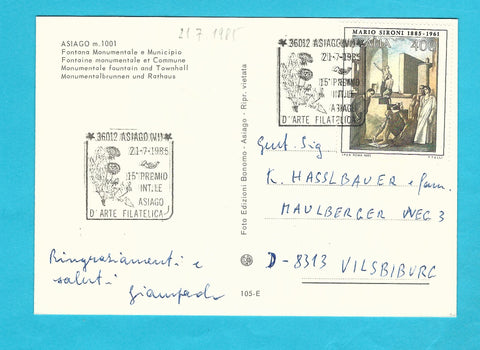 ASIAGO m. 1001
Fontana Monumentale e Municipio
Fontaine monumentale et Commune
Monumentale fountain and Townhall
Monumentalbrunnen und Rathaus
21.7.1985
36012 ASIAGO (VI)
21-7-1985
15° PREMIO
INT.LE
ASIAGO
D'ARTE FILATELICA
MARIO SIRONI 1885-1961
ITALIA 400
36012 ASIAGO (VI)
21-7-1985
15° PREMIO
INT.LE
ASIAGO
D'ARTE FILATELICA
Foto Edizioni Bonomo - Asiago - Ripr. vietata
Gent. Sig
K. HASSLBAUER e fam.
MAULBERGER WEG 3
D-8313 VILSBIBURG
Ringraziamenti e
saluti
Giampaolo
105-E